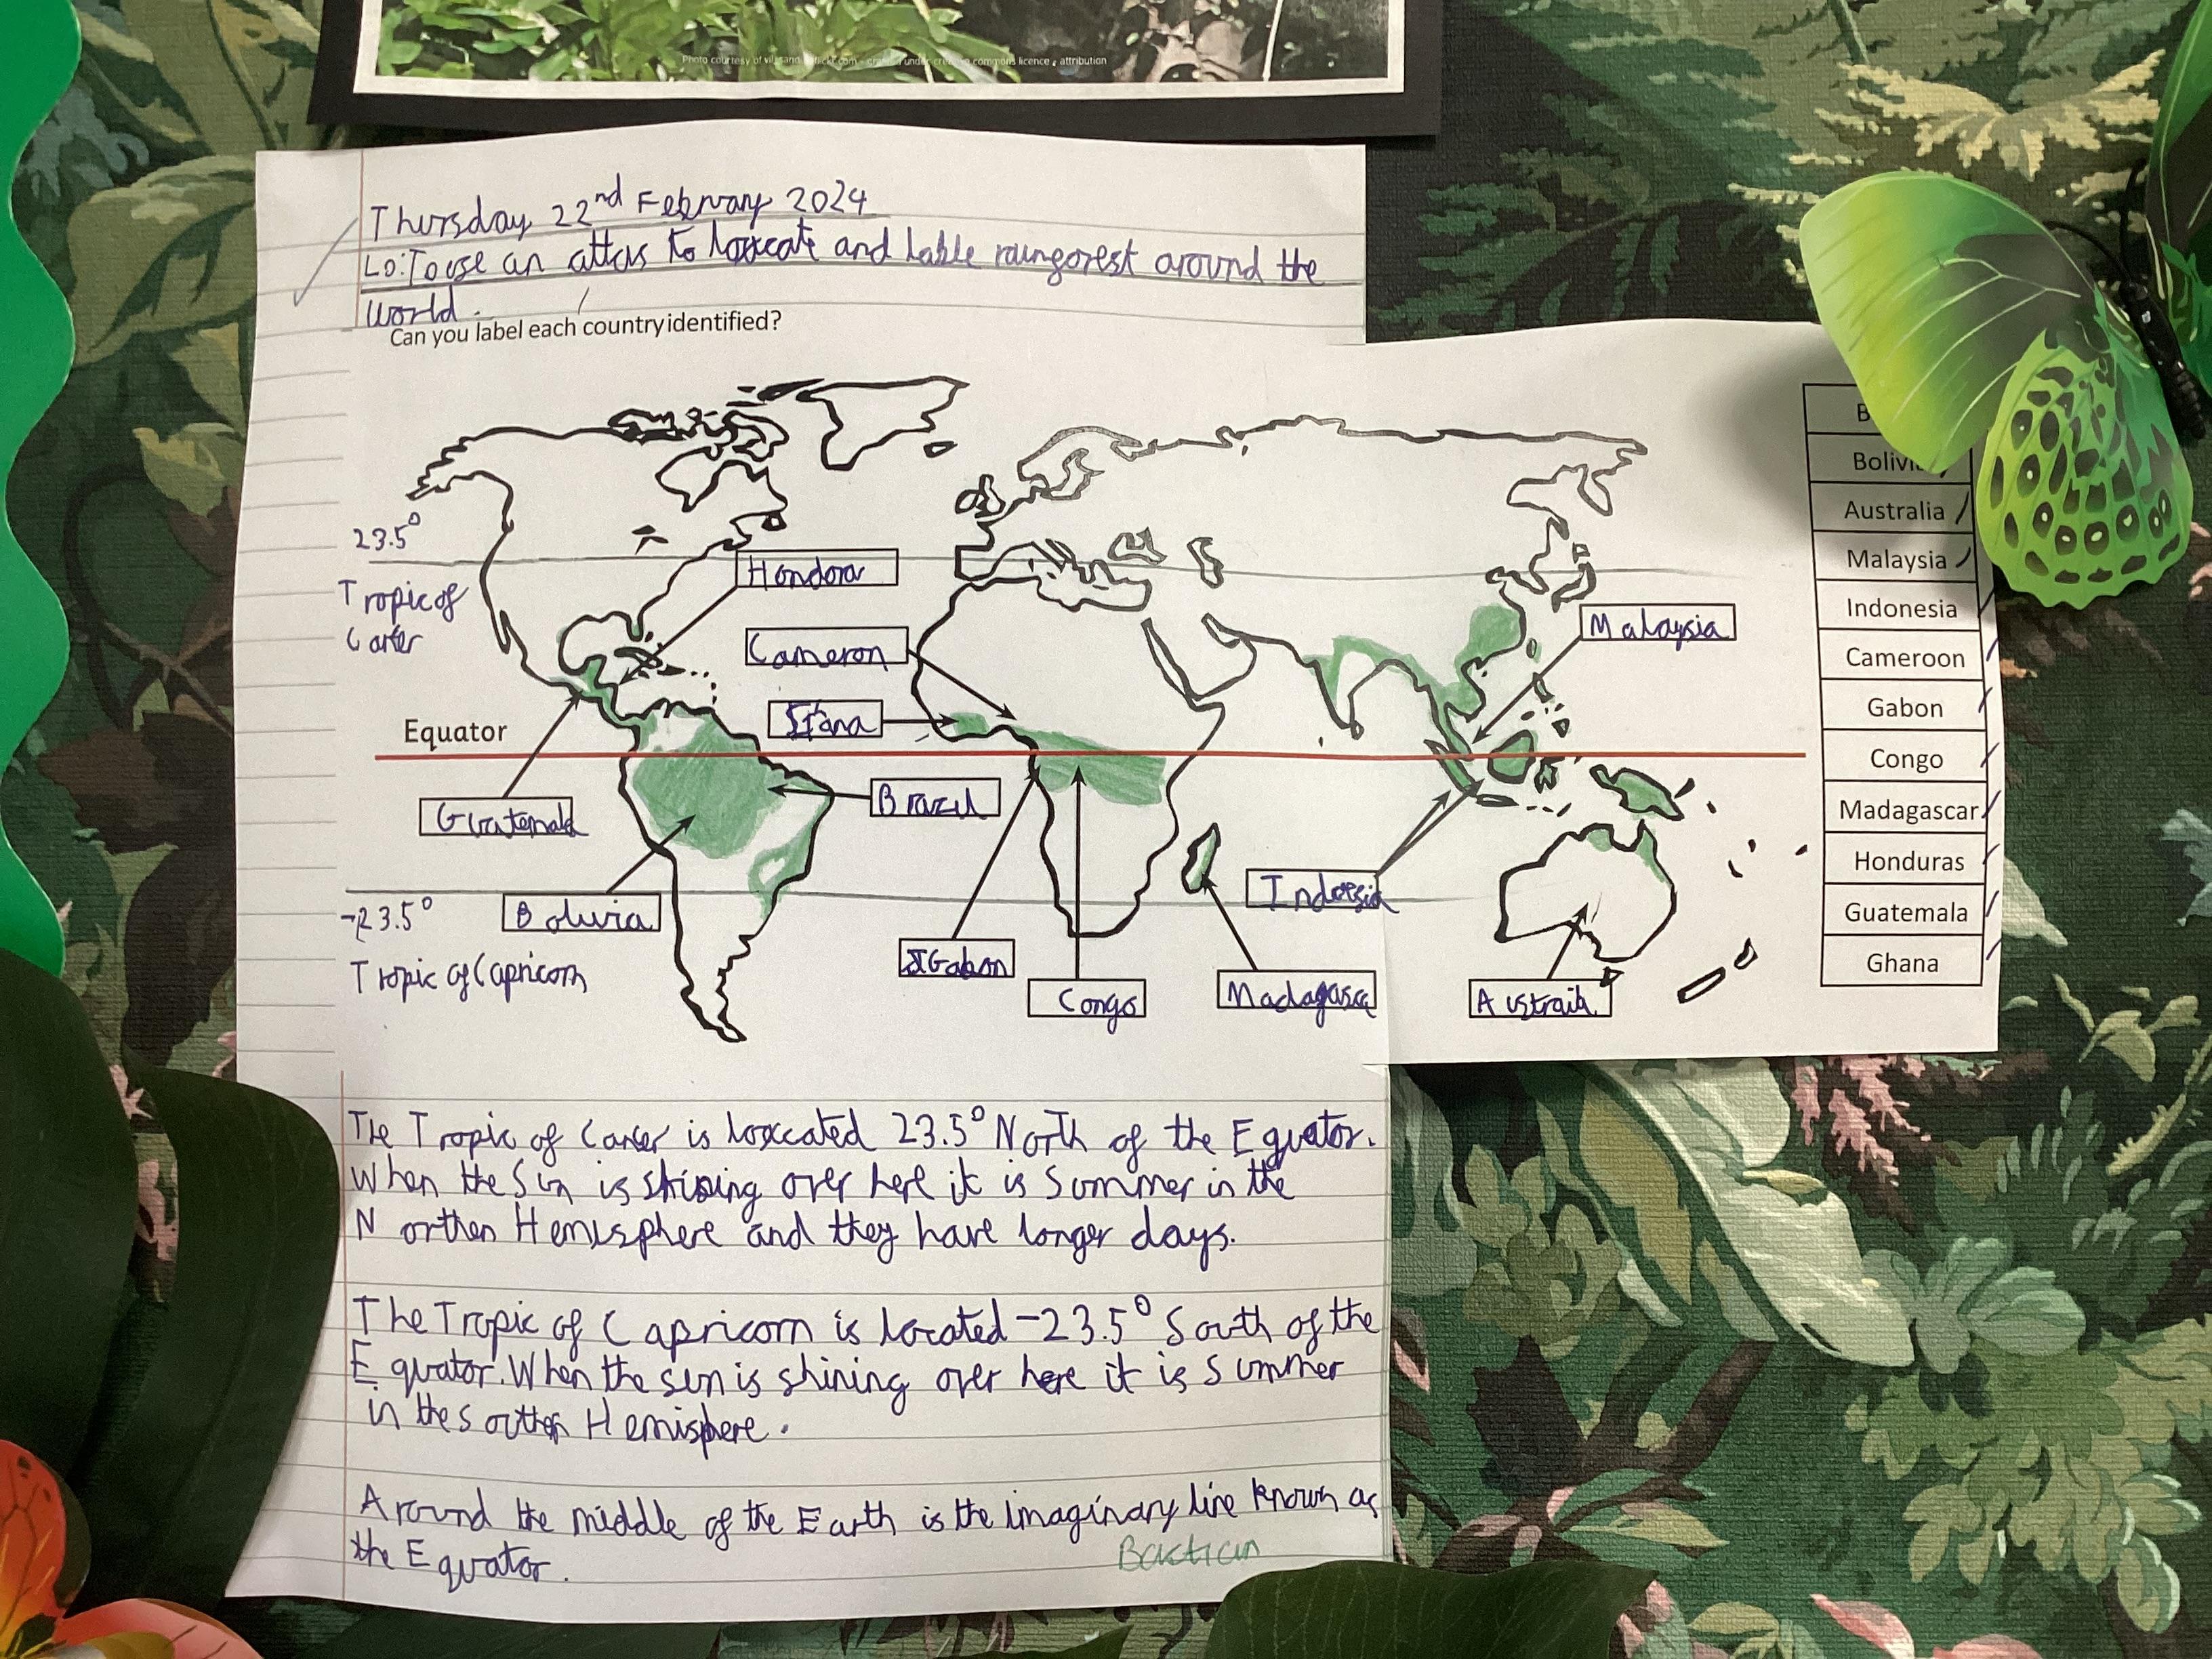 Photo courtesy of commons licence , attribution
Thursday 22nd February 2024
LO: To use an attlas to loxcate and lable raingorest around the
world.
Can you label each country identified?
23.5°
Tropic of
Canter
Hondora
Cameron
Malaysia
Equator
Gana
Brazil
Guatemala
Indoesia
-23.5°
Bolivia
Tropic of Capricorn
Gabon
Congo
Madagasca
Austraila
Australia
Malaysia
Indonesia
Cameroon
Gabon
Congo
Madagascar
Honduras
Guatemala
Ghana
The Tropic of Canser is loxcated 23.5° North of the Equator.
When the Sun is shining over here it is Summer in the
Northen Hemisphere and they have longer days.
The Tropic of Capricorn is located -23.5° South of the
Equator. When the sun is shining over here it is Summer
in the southen Hemisphere.
Around the middle of the Earth is the imaginary line known as
the Equator.
Bastian